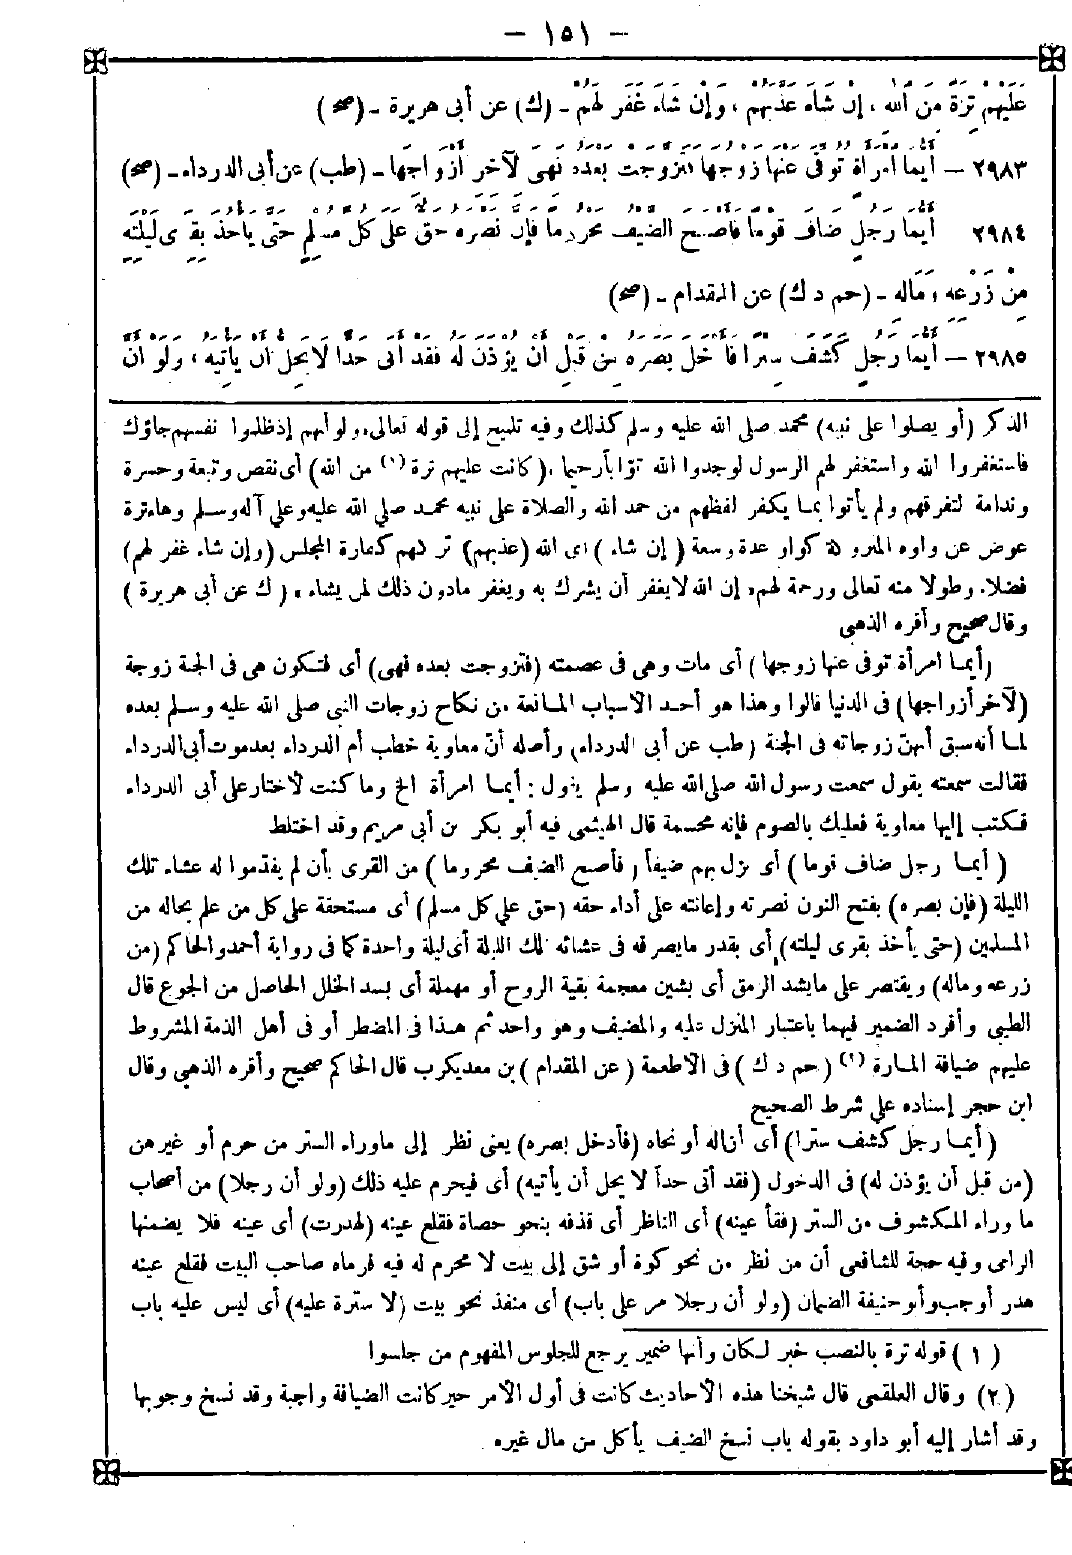 - ١٥١ -
عَلَيْهِمْ تِرَةٌ مِنَ اللهِ ، إِنْ شَاءَ عَذَّبَهُمْ ، وَإِنْ شَاءَ غَفَرَ لَهُمْ - (ك) عن أبى هريرة - (صح)
٢٩٨٣ - أَيُّمَا امْرَأَةٍ تُوُفِّىَ عَنْهَا زَوْجُهَا فَتَزَوَّجَتْ بَعْدَهُ فَهِىَ لِآخِرِ أَزْوَاجِهَا - (طب) عن أبى الدرداء - (صح)
٢٩٨٤ أَيُّمَا رَجُلٍ ضَافَ قَوْمًا فَأَصْبَحَ الضَّيْفُ مَحْرُومًا فَإِنَّ نَصْرَهُ حَقٌّ عَلَى كُلِّ مُسْلِمٍ حَتَّى يَأْخُذَ بِقِرَى لَيْلَتِهِ
مِنْ زَرْعِهِ وَمَالِهِ - (حم د ك) عن المقدام - (صح)
٢٩٨٥ - أَيُّمَا رَجُلٍ كَشَفَ سِتْرًا فَأَدْخَلَ بَصَرَهُ مِنْ قَبْلِ أَنْ يُؤْذَنَ لَهُ فَقَدْ أَتَى حَدًّا لَا يَحِلُّ أَنْ يَأْتِيَهُ ، وَلَوْ أَنَّ
الذكر (أو يصلوا على نبيه) محمد صلى الله عليه وسلم كذلك وفيه تلميح إلى قوله تعالى، ولو أنهم إذ ظلموا أنفسهم جاؤك
فاستغفروا الله واستغفر لهم الرسول لوجدوا الله توّابا رحيما، (كانت عليهم ترة (١) من الله) أى نقص وتبعة وحسرة
وندامة لتفرقهم ولم يأتوا بما يكفر لفظهم من حمد الله والصلاة على نبيه محمد صلى الله عليه وعلى آله وسلم وهاء ترة
عوض عن واوه المتروكة كواو عدة وسعة (إن شاء) أى الله (عذبهم) تركهم كفارة المجلس (وإن شاء غفر لهم)
فضلا، وطولا منه تعالى ورحمة لهم، إن الله لا يغفر أن يشرك به ويغفر مادون ذلك لمن يشاء، (ك عن أبى هريرة)
وقال صحيح وأقره الذهبى
(أيما امرأة توفى عنها زوجها) أى مات وهى فى عصمته (فتزوجت بعده فهى) أى فتكون هى فى الجنة زوجة
(لآخر أزواجها) فى الدنيا قالوا وهذا هو أحد الأسباب المانعة من نكاح زوجات النبى صلى الله عليه وسلم بعده
لما أنه سبق أنهنّ زوجاته فى الجنة (طب عن أبى الدرداء) وأصله أنّ معاوية خطب أم الدرداء بعد موت أبى الدرداء
فقالت سمعته يقول سمعت رسول الله صلى الله عليه وسلم يقول : أيما امرأة الخ وما كنت لأختار على أبى الدرداء
فكتب إليها معاوية فعليك بالصوم فإنه محسمة قال الهيثمى فيه أبو بكر بن أبى مريم وقد اختلط
(أيما رجل ضاف قوما) أى نزل بهم ضيفاً (فأصبح الضيف محروما) من القرى بأن لم يقدّموا له عشاء تلك
الليلة (فإن نصره) بفتح النون نصرته وإعانته على أداء حقه (حق على كل مسلم) أى مستحقة على كل من علم بحاله من
المسلمين (حتى يأخذ بقرى ليلته) أى بقدر مايصرفه فى عشائه تلك الليلة أى ليلة واحدة كما فى رواية أحمد والحاكم (من
زرعه وماله) ويقتصر على مايشد الرمق أى بشين معجمة بقية الروح أو مهملة أى يسد الخلل الحاصل من الجوع قال
الطيبى وأفرد الضمير فيهما باعتبار المنزل عليه والمضيف وهو واحد ثم هذا فى المضطر أو فى أهل الذمة المشروط
عليهم ضيافة المارة (٢) (حم د ك) فى الأطعمة (عن المقدام) بن معديكرب قال الحاكم صحيح وأقره الذهبى وقال
ابن حجر إسناده على شرط الصحيح
(أيما رجل كشف سترا) أى أزاله أو نحاه (فأدخل بصره) يعنى نظر إلى ماوراء الستر من حرم أو غيرهن
(من قبل أن يؤذن له) فى الدخول (فقد أتى حداً لا يحل أن يأتيه) أى فيحرم عليه ذلك (ولو أن رجلا) من أصحاب
ما وراء المكشوف من الستر (فقأ عينه) أى الناظر أى قذفه بنحو حصاة فقلع عينه (لهدرت) أى عينه فلا يضمنها
الرامى وفيه حجة للشافعى أن من نظر من نحو كوة أو شق إلى بيت لا محرم له فيه فرماه صاحب البيت فقلع عينه
هدر أوجب وأبو حنيفة الضمان (ولو أن رجلا مر على باب) أى منفذ نحو بيت (لا سترة عليه) أى ليس عليه باب
(١) قوله ترة بالنصب خبر لكان وأنها ضمير يرجع للجلوس المفهوم من جلسوا
(٢) وقال العلقمى قال شيخنا هذه الأحاديث كانت فى أول الأمر حين كانت الضيافة واجبة وقد نسخ وجوبها
وقد أشار إليه أبو داود بقوله باب نسخ الضيف يأكل من مال غيره